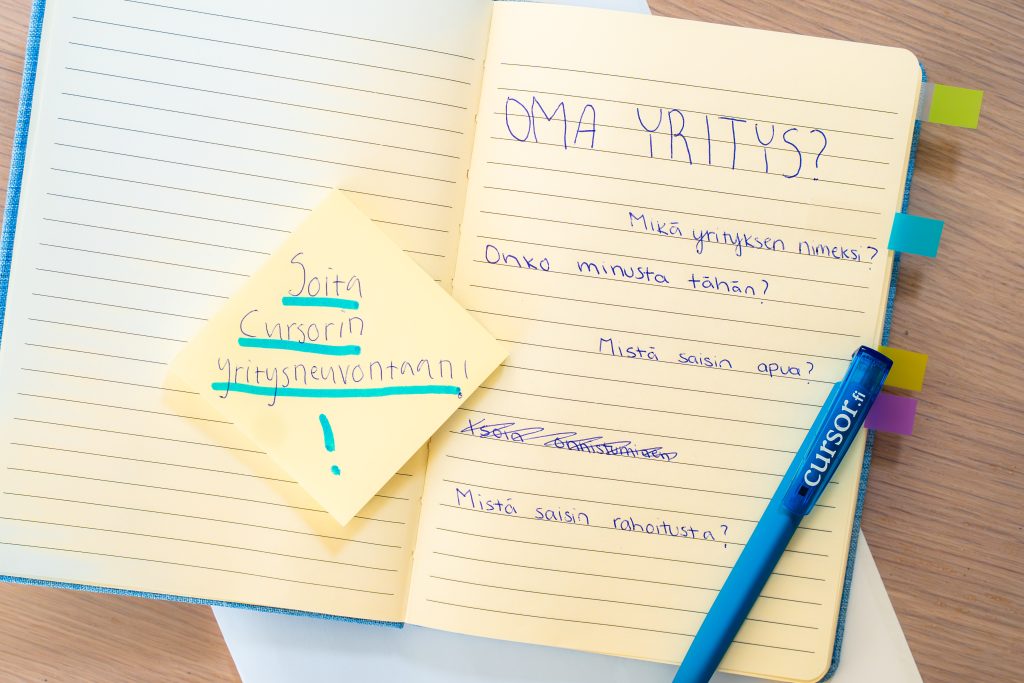 Soita
Cursorin
yritysneuvontaan!
!
OMA YRITYS?
Mikä yrityksen nimeksi?
Onko minusta tähän?
Mistä saisin apua?
Mistä saisin rahoitusta?
cursor.fi